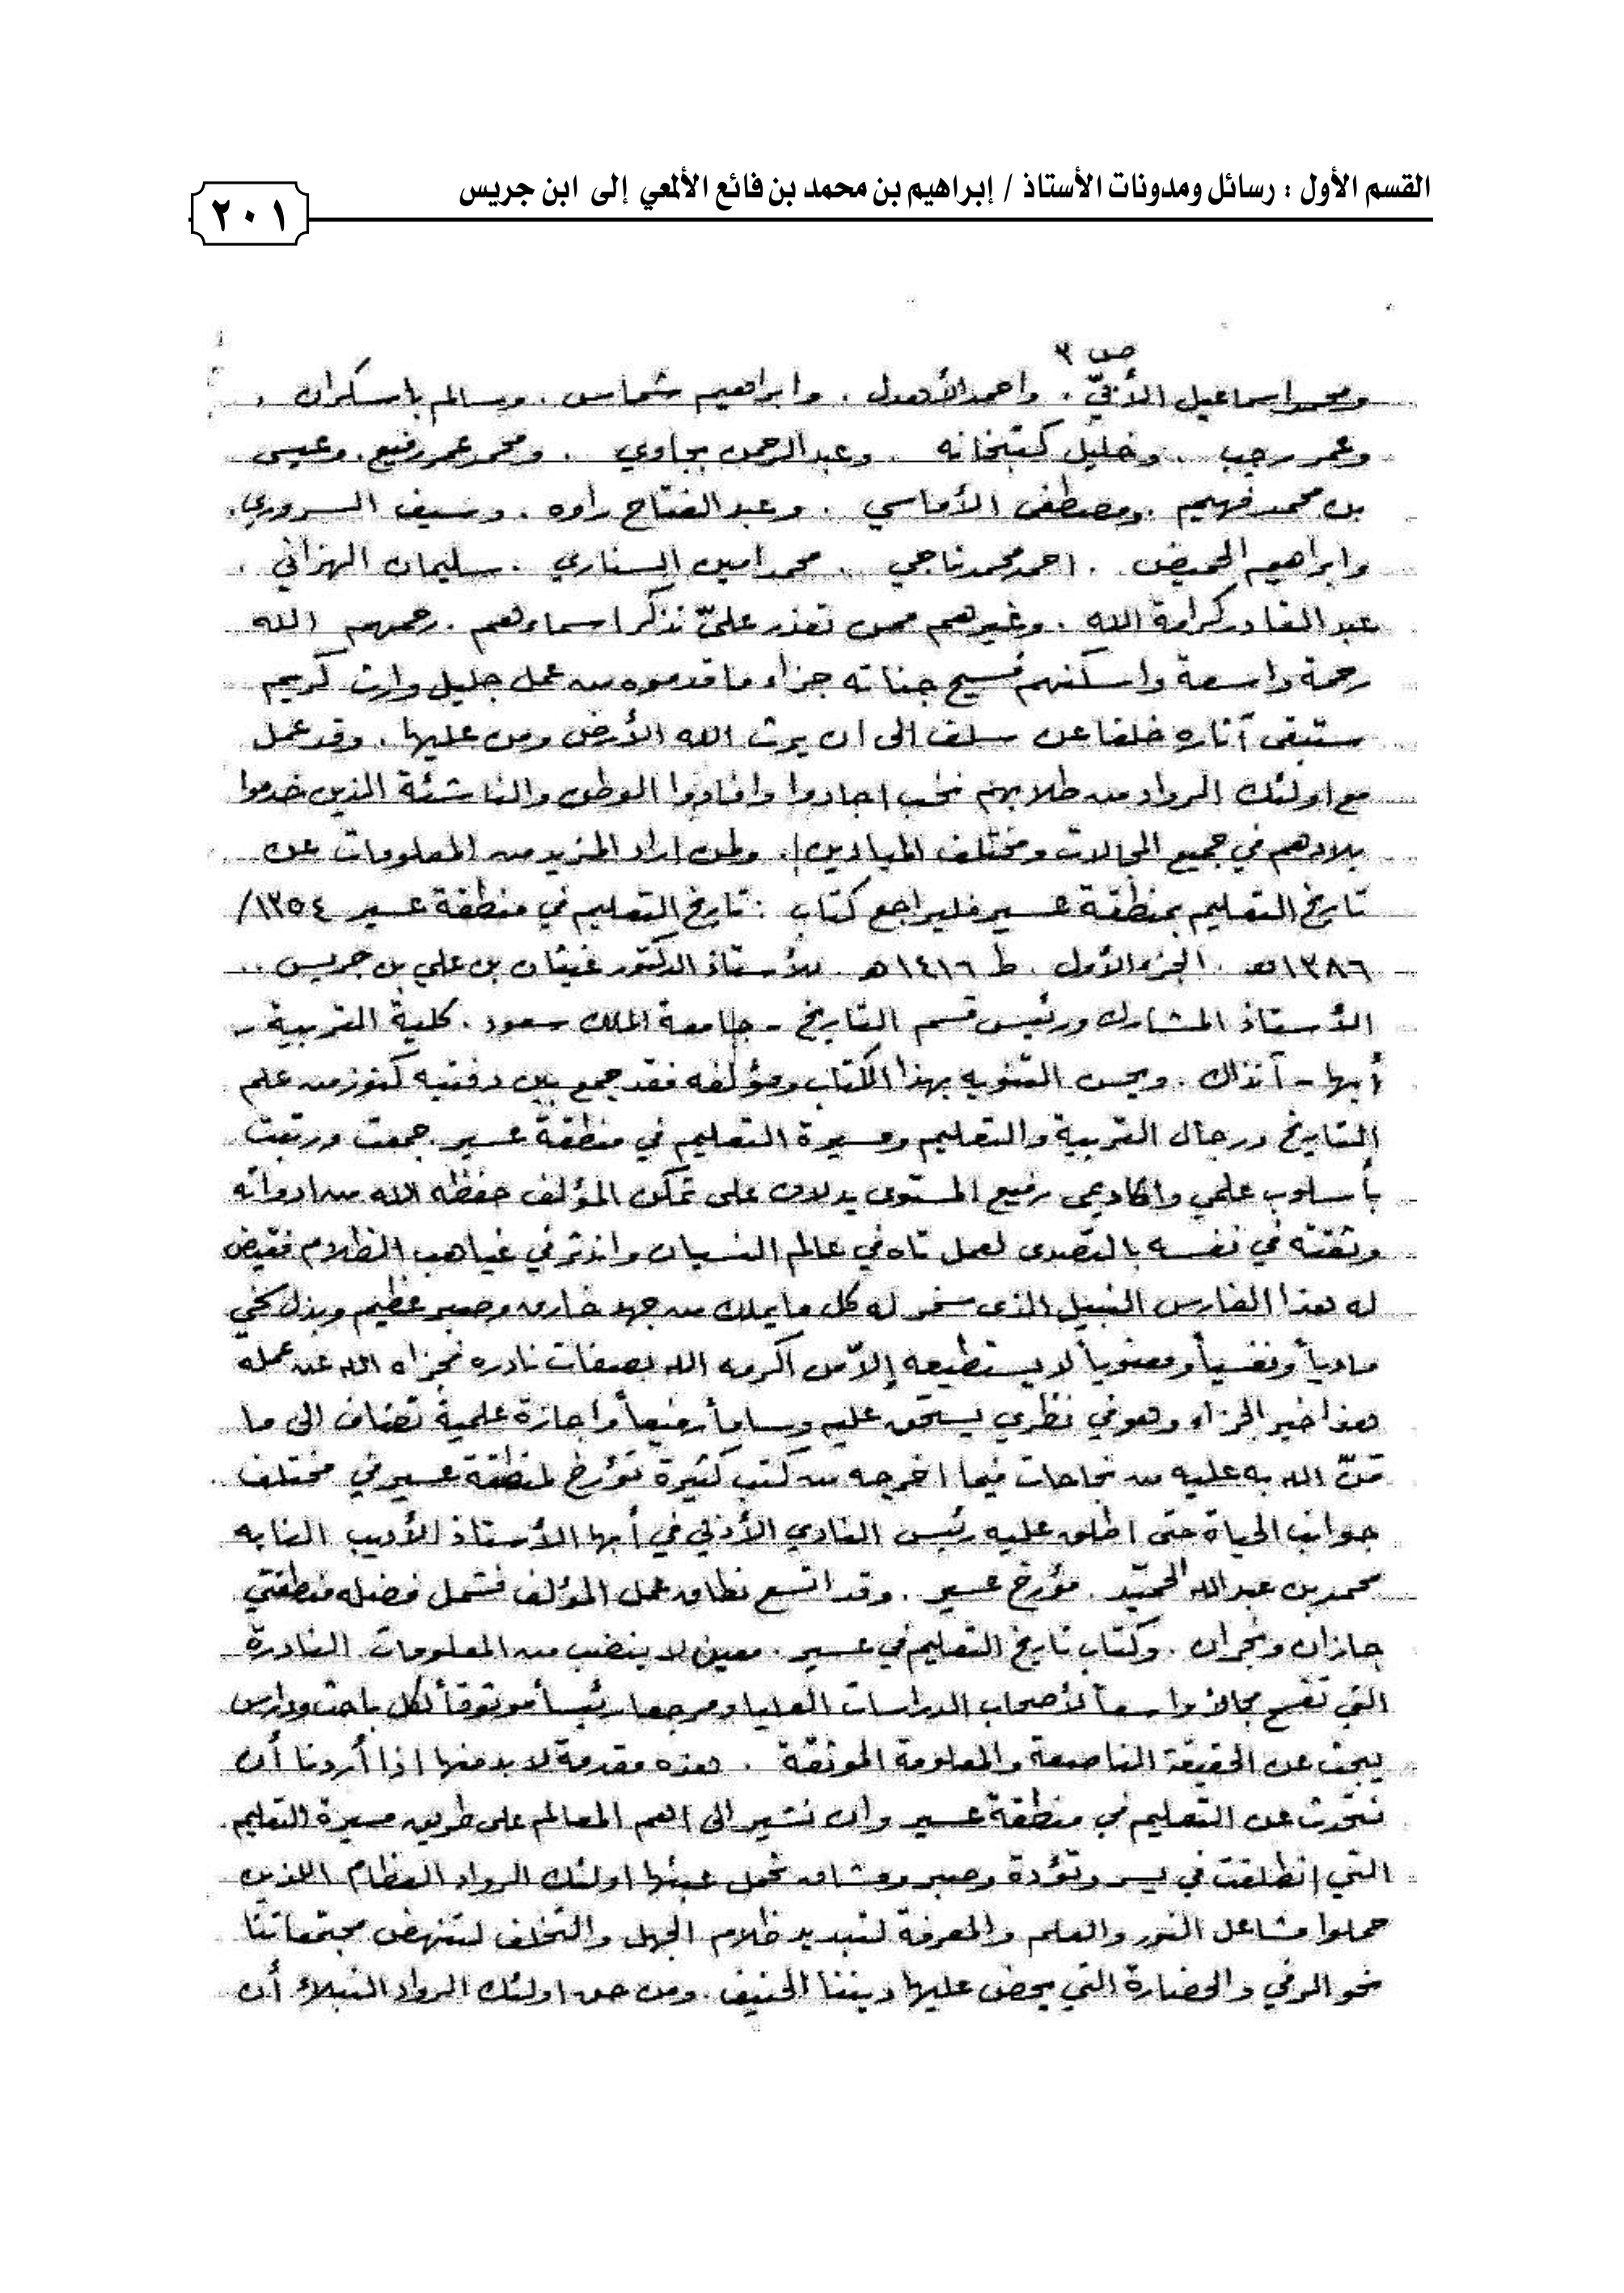 القسم الأول : رسائل ومدونات الأستاذ / إبراهيم بن محمد بن فائع الألمعي إلى ابن جريس
٢٠١
ص ٣
ومحمد اسماعيل الأفيّ . واحمد الأهدل . وابراهيم شماس . وسالم باسكران .
وعمر رجب . وخليل كتبخانه . وعبد الرحمن بجاوي . ومحمد عمر رفيع . وعيسى
بن محمد فهيم . ومصطفى الأماسي . وعبد الفتاح راوه . وسيف السروري .
وابراهيم الحميض . احمد محمد ناجي . محمد امين السناري . سليمان الهزاني .
عبد القادر كرامة الله . وغيرهم ممن تعذر عليّ تذكر اسماءهم . رحمهم الله
رحمة واسعة واسكنهم فسيح جناته جزاء ما قدموه من عمل جليل وارث كريم
ستبقى آثاره خلفا عن سلف الى ان يرث الله الأرض ومن عليها . وقد عمل
مع اولئك الرواد من طلابهم نخب اجادوا وافادوا الوطن والناشئة الذين خدموا
بلادهم في جميع المجالات ومختلف الميادين . ولمن اراد المزيد من المعلومات عن
تاريخ التعليم بمنطقة عسير فليراجع كتاب : تاريخ التعليم في منطقة عسير ١٣٥٤/
١٣٨٦هـ . الجزء الأول . ط ١٤١٦هـ . للأستاذ الدكتور غيثان بن علي بن جريس ..
الأستاذ المشارك ورئيس قسم التاريخ - جامعة الملك سعود . كلية التربية -
أبها - آنذاك . ويحسن التنويه بهذا الكتاب ومؤلفه فقد جمع بين دفتيه كنوز من علم
التاريخ ورجال التربية والتعليم ومسيرة التعليم في منطقة عسير . جمعت ورتبت
بأسلوب علمي واكاديمي رفيع المستوى يدلان على تمكن المؤلف حفظه الله من ادواته
وثقته في نفسه بالتصدى لعمل تاه في عالم النسيان واندثر في غياهب الظلام فقيض
له هذا الفارس النبيل الذى سخر له كل ما يملك من جهد خارق وصبر عظيم وبذل سخي
مادياً ونفسياً ومعنوياً لا يستطيعه إلاّ من اكرمه الله بصفات نادره فجزاه الله عن عمله
هذا خير الجزاء وهو في نظري يستحق عليه وساماً رفيعاً واجازة علمية تضاف الى ما
منّ الله به عليه من نجاحات فيما اخرجه من كتب كثيرة تؤرخ لمنطقة عسير في مختلف
جوانب الحياة حتى اطلق عليه رئيس النادي الأدبي في أبها الأستاذ الأديب النابه
محمد بن عبد الله الحميّد . مؤرخ عسير . وقد اتسع نطاق عمل المؤلف فشمل فضله منطقتي
جازان ونجران . وكتاب تاريخ التعليم في عسير . معين لا ينضب من المعلومات النادرة
التي تفسح مجالاً واسعاً لأصحاب الدراسات العليا ومرجعا رئيساً موثوقاً لكل باحث ودارس
يبحث عن الحقيقة الناصعة والمعلومة الموثقة . هذه مقدمة لا بد منها اذا أردنا أن
نتحدث عن التعليم في منطقة عسير وان نشير الى اهم المعالم على طريق مسيرة التعليم .
التي انطلقت في يسر وتؤدة وصبر ومشاق تحمل عبئها اولئك الرواد العظام اللذين
حملوا مشاعل النور والعلم والمعرفة لتبديد ظلام الجهل والتخلف لتنهض مجتمعاتنا
نحو الرقي والحضارة التي يحض عليها ديننا الحنيف . ومن حق اولئك الرواد النبلاء أن